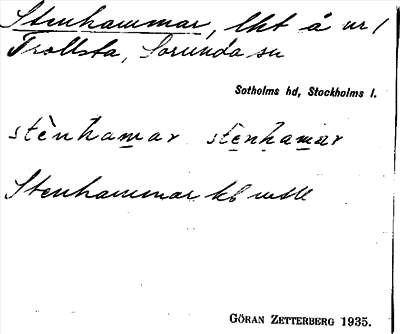 Stenhammar, lht å nr 1
Trollsta, Sorunda sn
Sotholms hd, Stockholms l.
stènhamar stenhamar
Stenhammar kb
GÖRAN ZETTERBERG 1935.